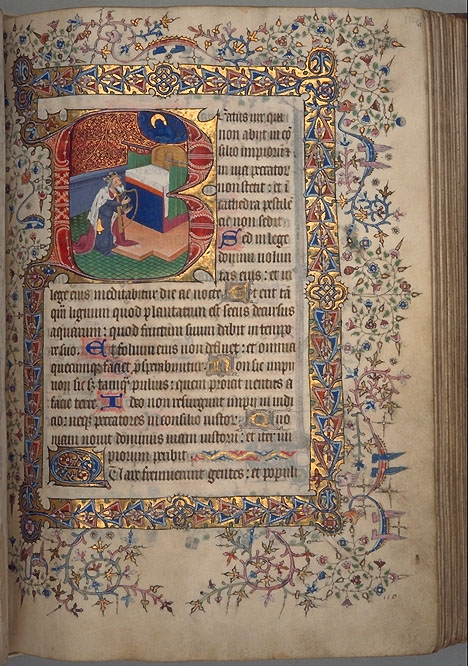 Beatus vir qui
non abijt in cō
silio impiorū et
in via peccatorꝝ
non stetit : et ī
cathedra pestilē
cie non sedit
Sed in lege
domini volun
tas eius : et in
lege eius meditabitur die ac nocte Et erit tā
qm̄ lignum quod plantatum est secus decursus
aquarum : quod fructum suum dabit in tempo
re suo. Et folium eius non defluet : et omnia
quecumque faciet prosperabuntur Non sic impij
non sic sꝫ tamqm̄ puluis : quem proicit ventus a
facie terre. Ideo non resurgunt impij in iudi
cio : neqꝫ peccatores in consilio iustorꝝ Quo
niam nouit dominus viam iustorꝝ : et iter im
piorum peribit
Quare fremuerunt gentes : et populi
110